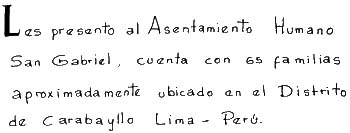 Les presento al Asentamiento Humano
San Gabriel, cuenta con 65 familias
aproximadamente ubicado en el Distrito
de Carabayllo Lima - Perú.